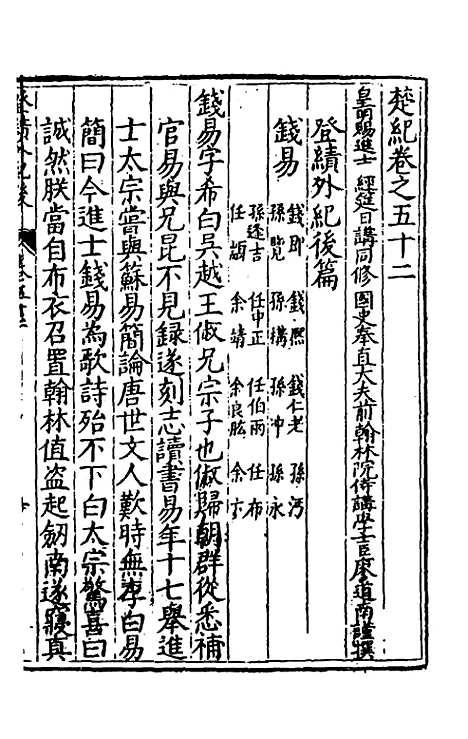 楚紀卷之五十二
皇明賜進士 經筵日講同修 國史奉直大夫前翰林院侍講學士臣廖道南謹撰
登績外紀後篇
錢易
錢即 錢熈 錢仁老 孫沔
孫覽 孫構 孫冲 孫永
孫逢吉 任中正 任伯雨 任布
任顓 余靖 余良肱 余卞
錢易字希白吳越王俶兄宗子也俶歸朝群從悉補
官易與兄昆不見録遂刻志讀書易年十七舉進
士太宗嘗與蘇易簡論唐世文人歎時無李白易
簡曰今進士錢易為歌詩殆不下白太宗驚喜曰
誠然朕當自布衣召置翰林值盗起劒南遂寢真